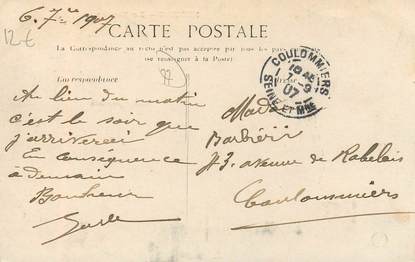 6. 7re 1907
12€
CARTE POSTALE
La Correspondance au recto n'est pas acceptée par tous les pays
(se renseigner à la Poste)
Correspondance
77
COULOMMIERS
7 - 9
07
SEINE ET MNE
Au lieu du matin
c'est le soir que
j'arriverai
En conséquence
à demain
Bonheur
Made
Barbieri
43. avenue de Rabelais
Coulommiers